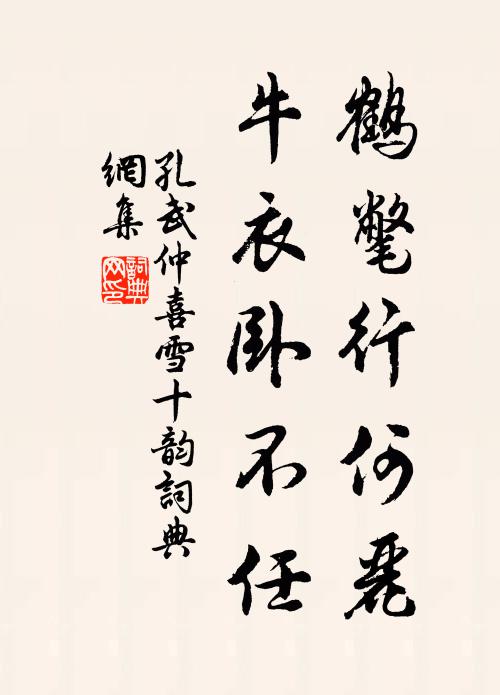 鶴氅行何麗
牛衣卧不任
孔武仲喜雪十韵詞典
網集
詞典網印